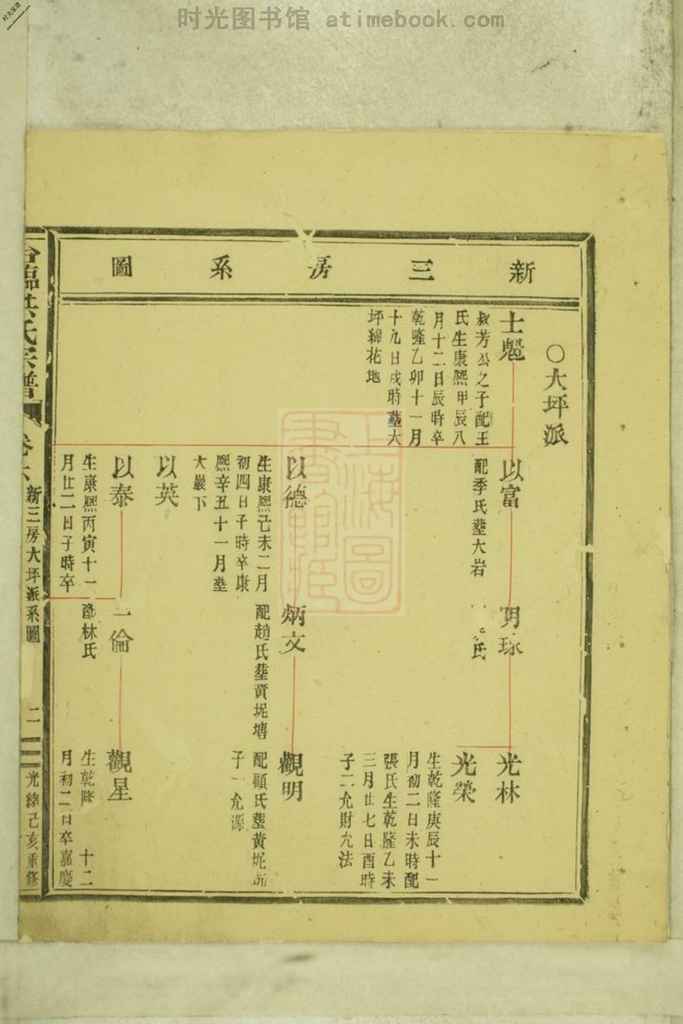 时光图书馆 atimebook.com
新三房系圖
○大坪派
士魁
叔芳公之子配王
氏生康熙甲辰八
月十二日辰時卒
乾隆乙卯十一月
十九日戌時塟大
坪綿花地
以富
配季氏塟大岩
以德
生康熙己未二月
初四日子時卒康
熙辛丑十一月塟
大巖下
以英
以泰
生康熙丙寅十一
月廿二日子時卒
氏
炳文
配趙氏塟黃坭塘
一倫
配林氏
光林
光榮
生乾隆庚辰十一
月初二日未時配
張氏生乾隆乙未
三月廿七日酉時
子二允財允法
觀明
配顧氏塟黃坭
子一允源
觀星
生乾隆 十二
月初二日卒嘉慶
臨洪氏宗譜
卷六
新三房大坪派系圖
二
光緒己亥重修
上海圖書館藏